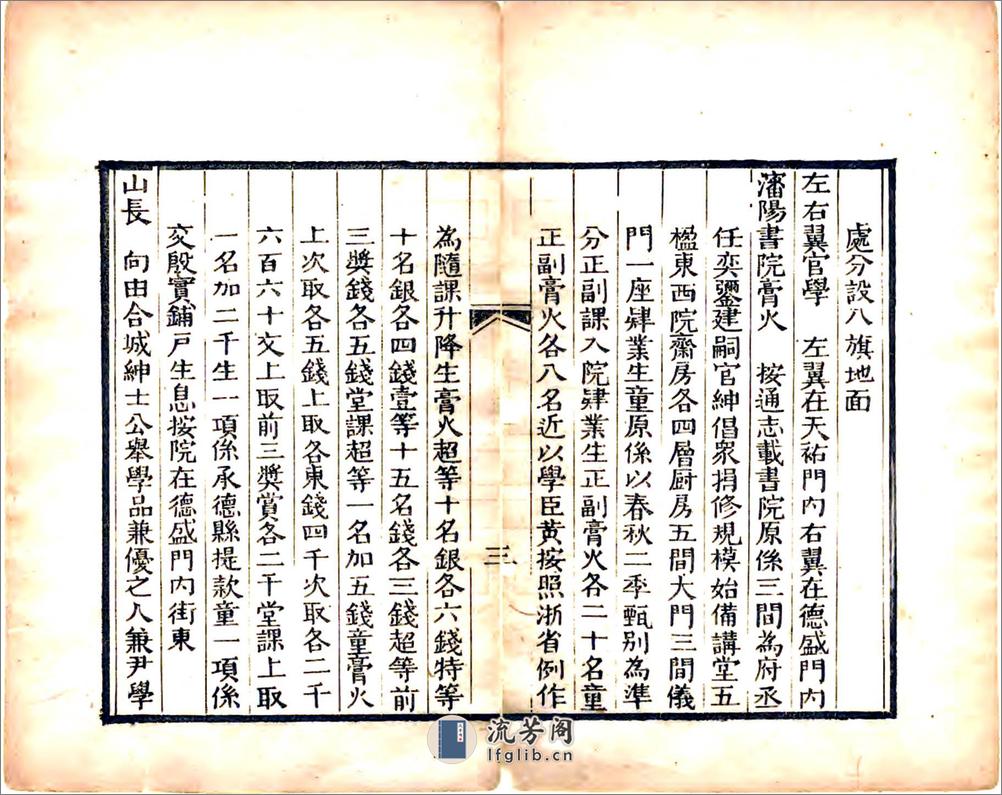 處分設八旗地面
左右翼官學　左翼在天祐門內右翼在德盛門內
瀋陽書院膏火　按通志載書院原係三間為府丞
任奕彌建嗣官紳倡衆捐修規模始備講堂五
楹東西院齋房各四層厨房五間大門三間儀
門一座肄業生童原係以春秋二季甄别為準
分正副課入院肄業生正副膏火各二十名童
正副膏火各八名近以學臣黄按照浙省例作
三
為隨課升降生膏火超等十名銀各六錢特等
十名銀各四錢壹等十五名錢各三錢超等前
三獎錢各五錢堂課超等一名加五錢童膏火
上次取各五錢上取各東錢四千次取各二千
六百六十文上取前三獎賞各二千堂課上取
一名加二千生一項係承德縣提款童一項係
交殷實鋪戸生息按院在德盛門內街東
山長　向由合城紳士公舉學品兼優之人兼尹學
流芳阁
lfglib.cn